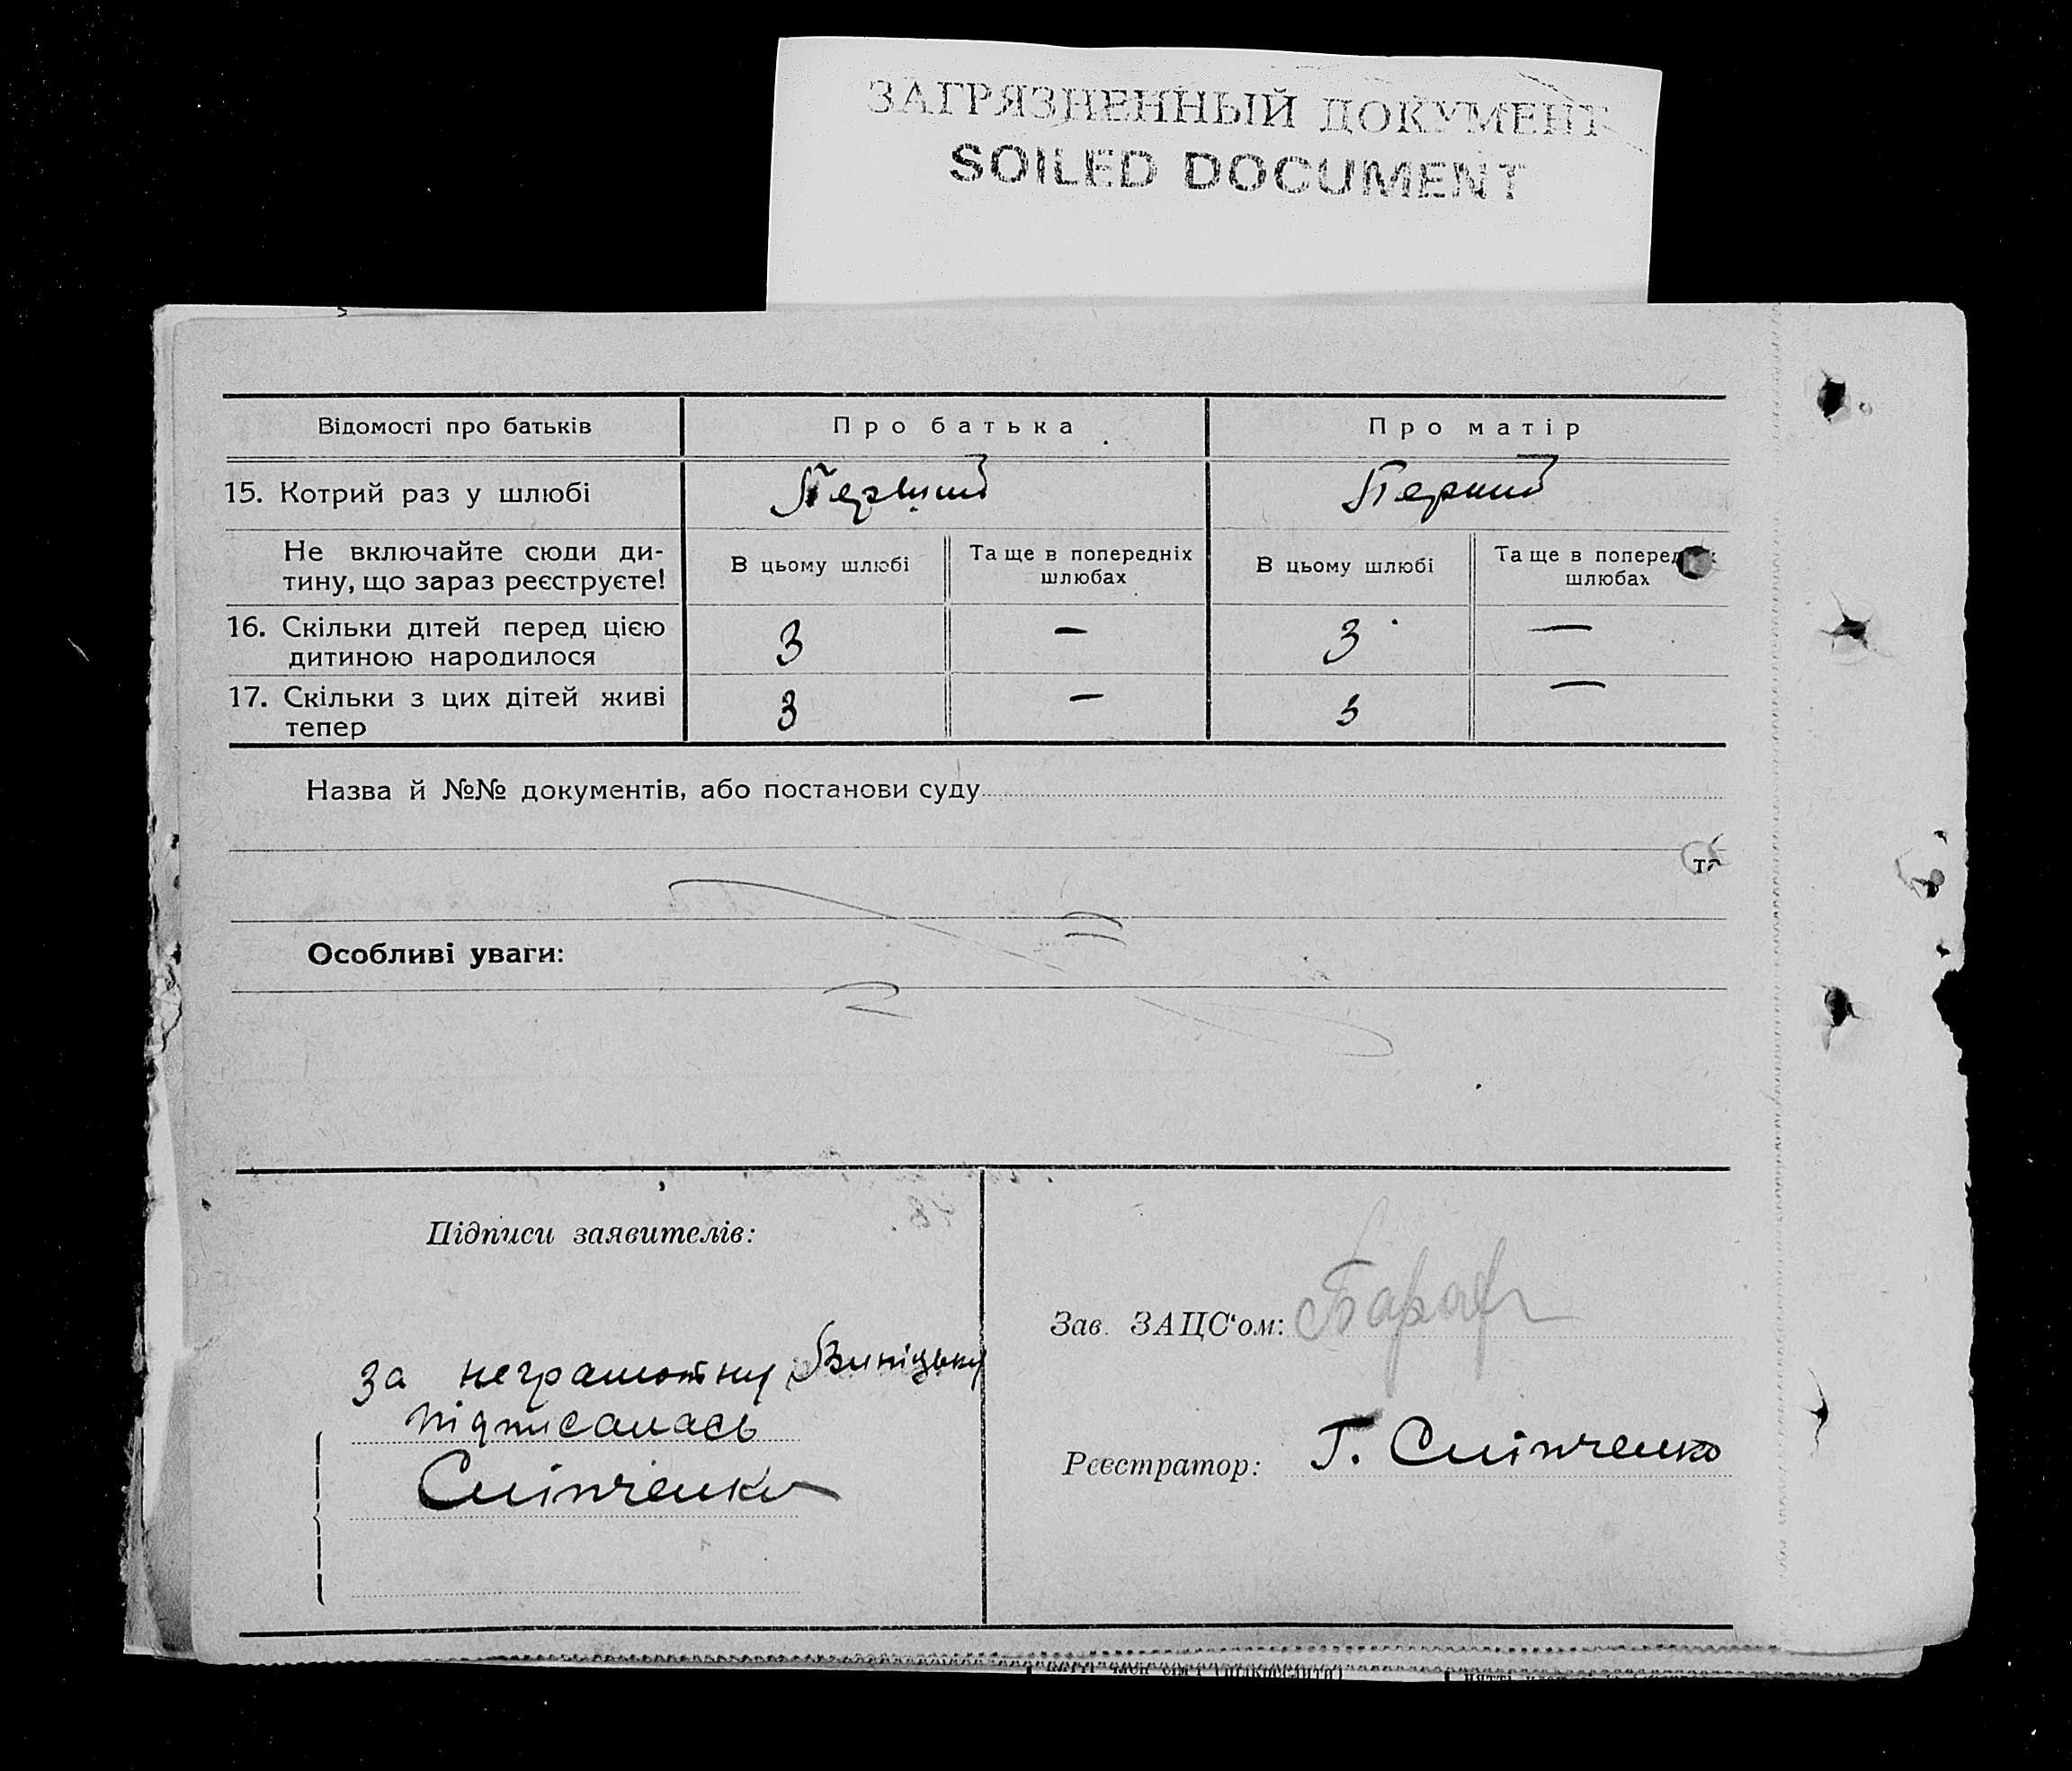 ЗАГРЯЗНЕННЫЙ ДОКУМЕНТ
SOILED DOCUMENT
Відомості про батьків
Про батька
Про матір
15. Котрий раз у шлюбі
Перший
Перший
Не включайте сюди ди-
тину, що зараз реєструєте!
В цьому шлюбі
Та ще в попередніх
шлюбах
В цьому шлюбі
Та ще в поперед
шлюбах
16. Скільки дітей перед цією
дитиною народилося
3
—
3
—
17. Скільки з цих дітей живі
тепер
3
—
3
—
Назва й №№ документів, або постанови суду
та
Особливі уваги:
Підписи заявителів:
за неграмотну Виніцьку
підписалась
Сліпченко
Зав. ЗАЦС‘ом:
Реєстратор: Г. Сліпченко